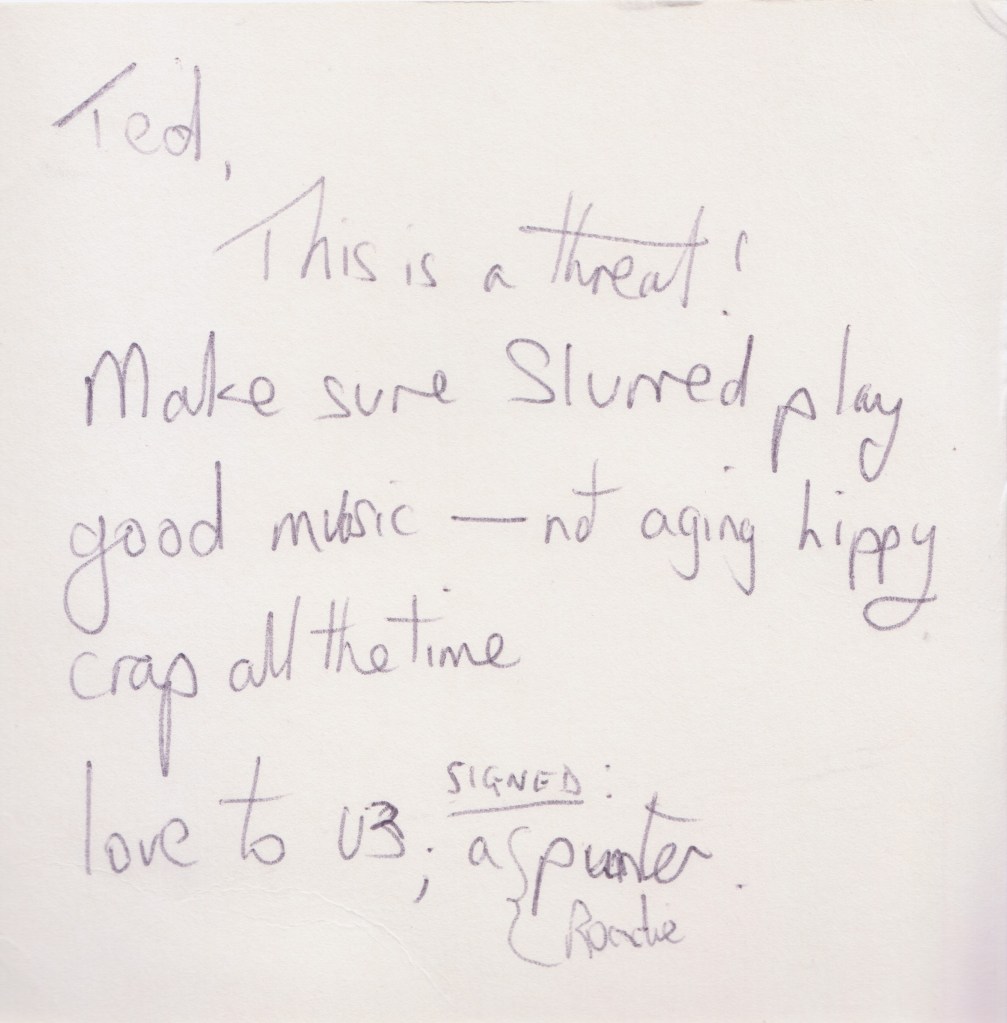 Ted,
This is a threat!
Make sure Slurred play
good music — not aging hippy
crap all the time
SIGNED:
love to U3; a { punter.
{ Roadie